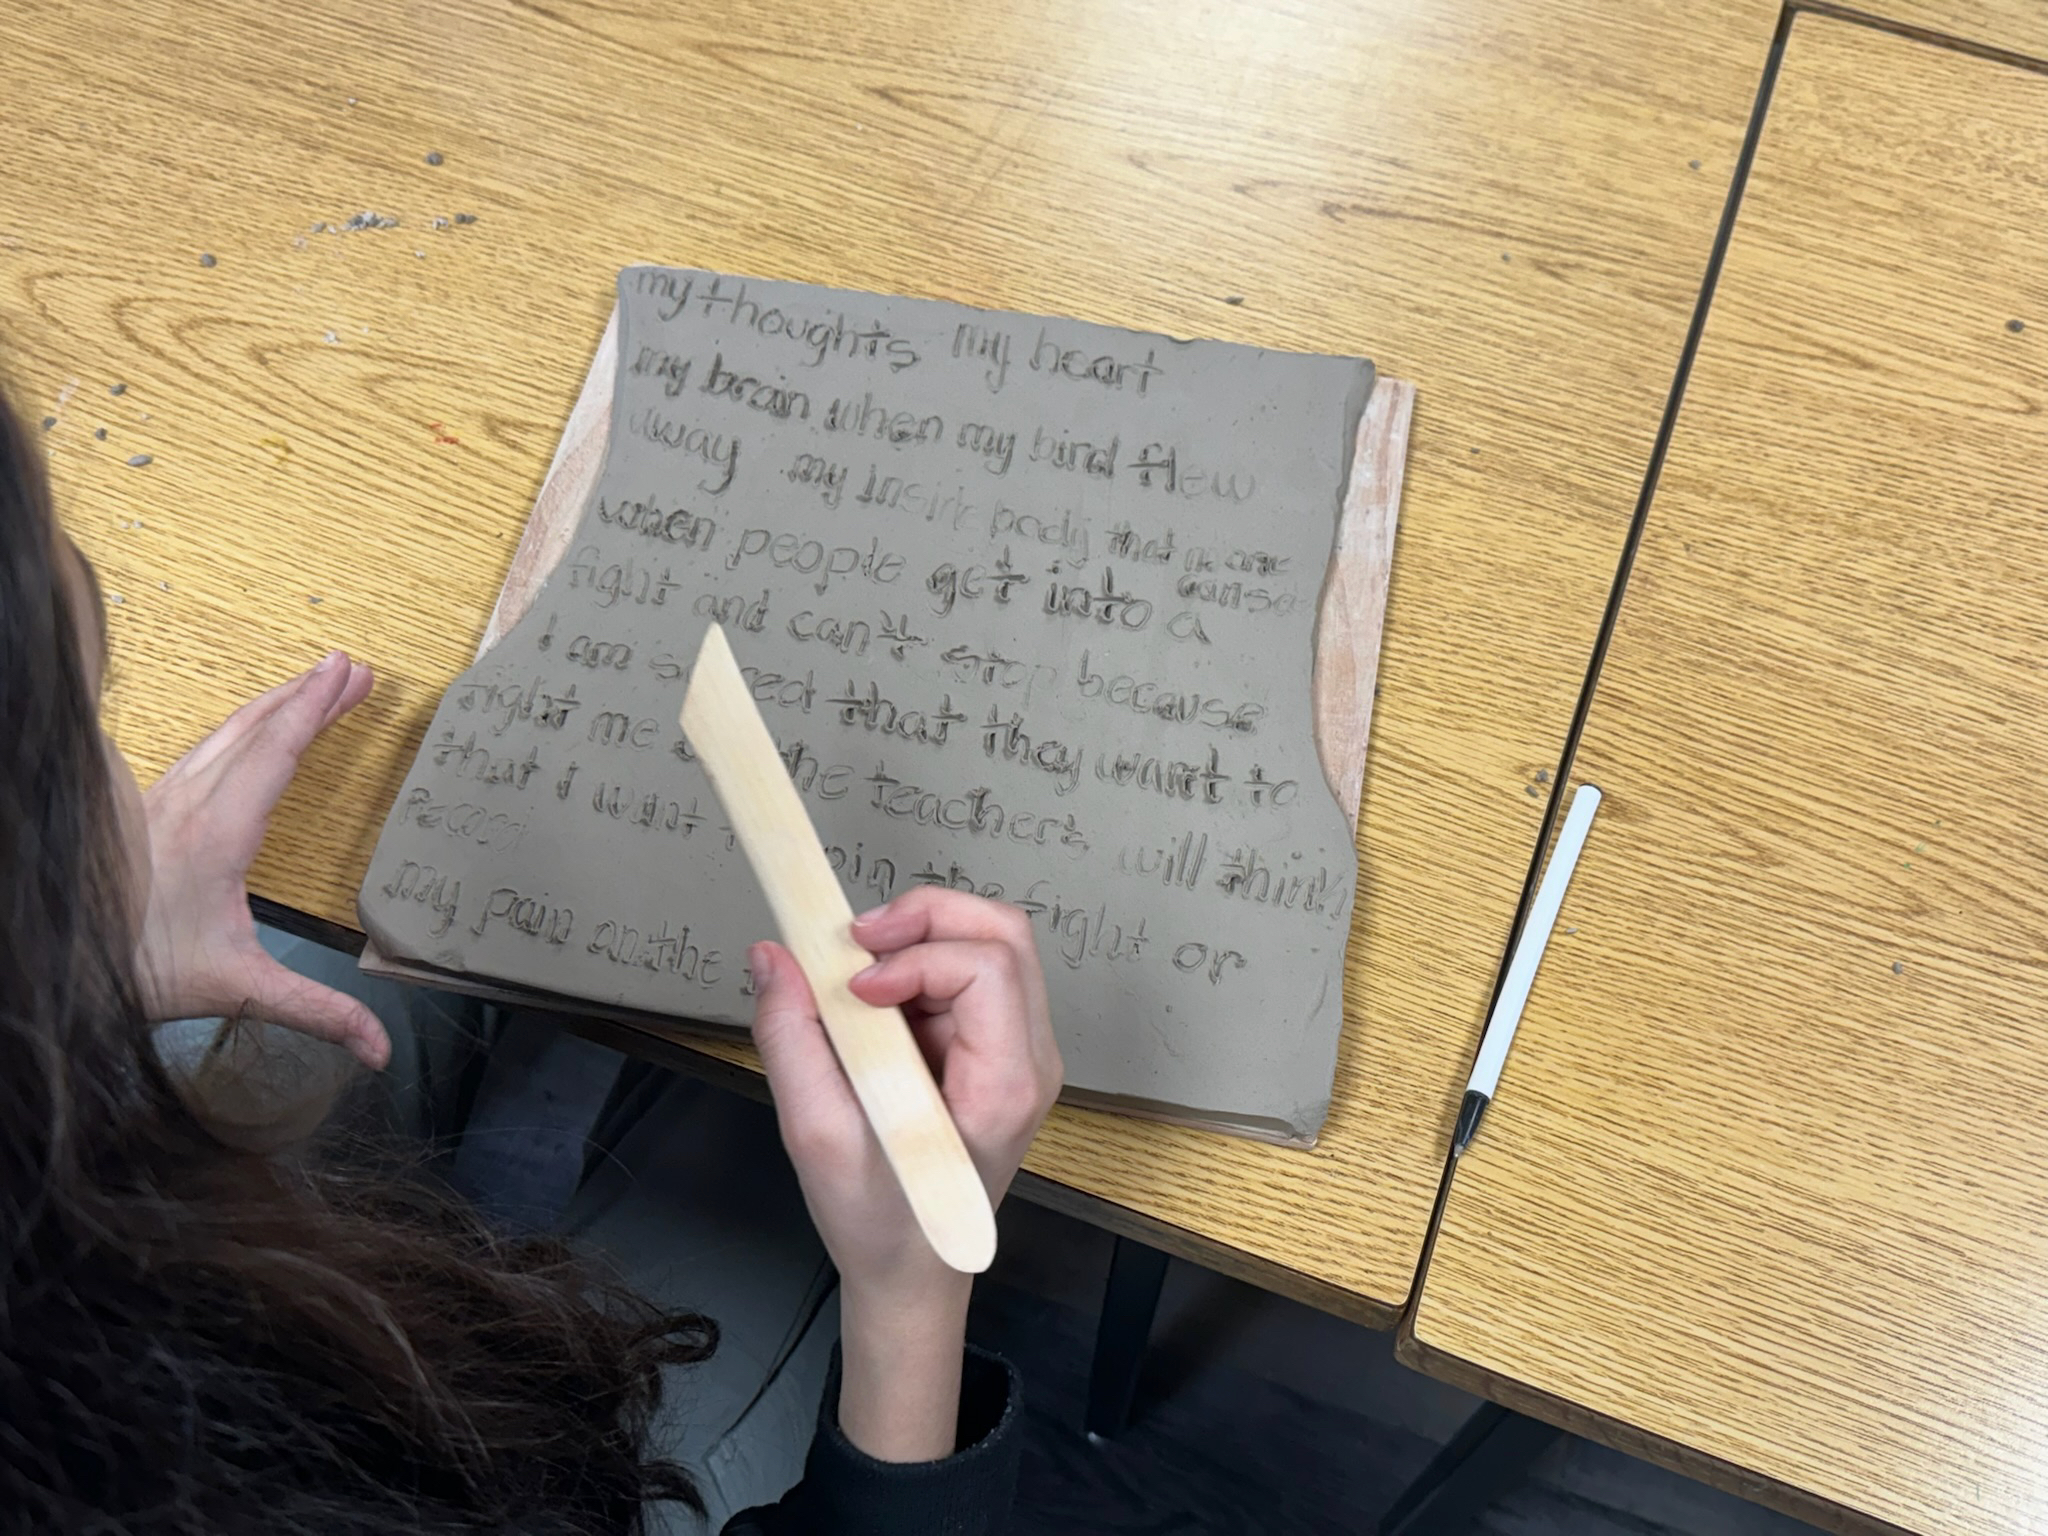 my thoughts my heart
my brain when my bird flew
away my inside body that n are
when people get into a
fight and can't stop because
I am scared that they want to
fight me the teachers will think
that I want join the fight or
record
my pain on the